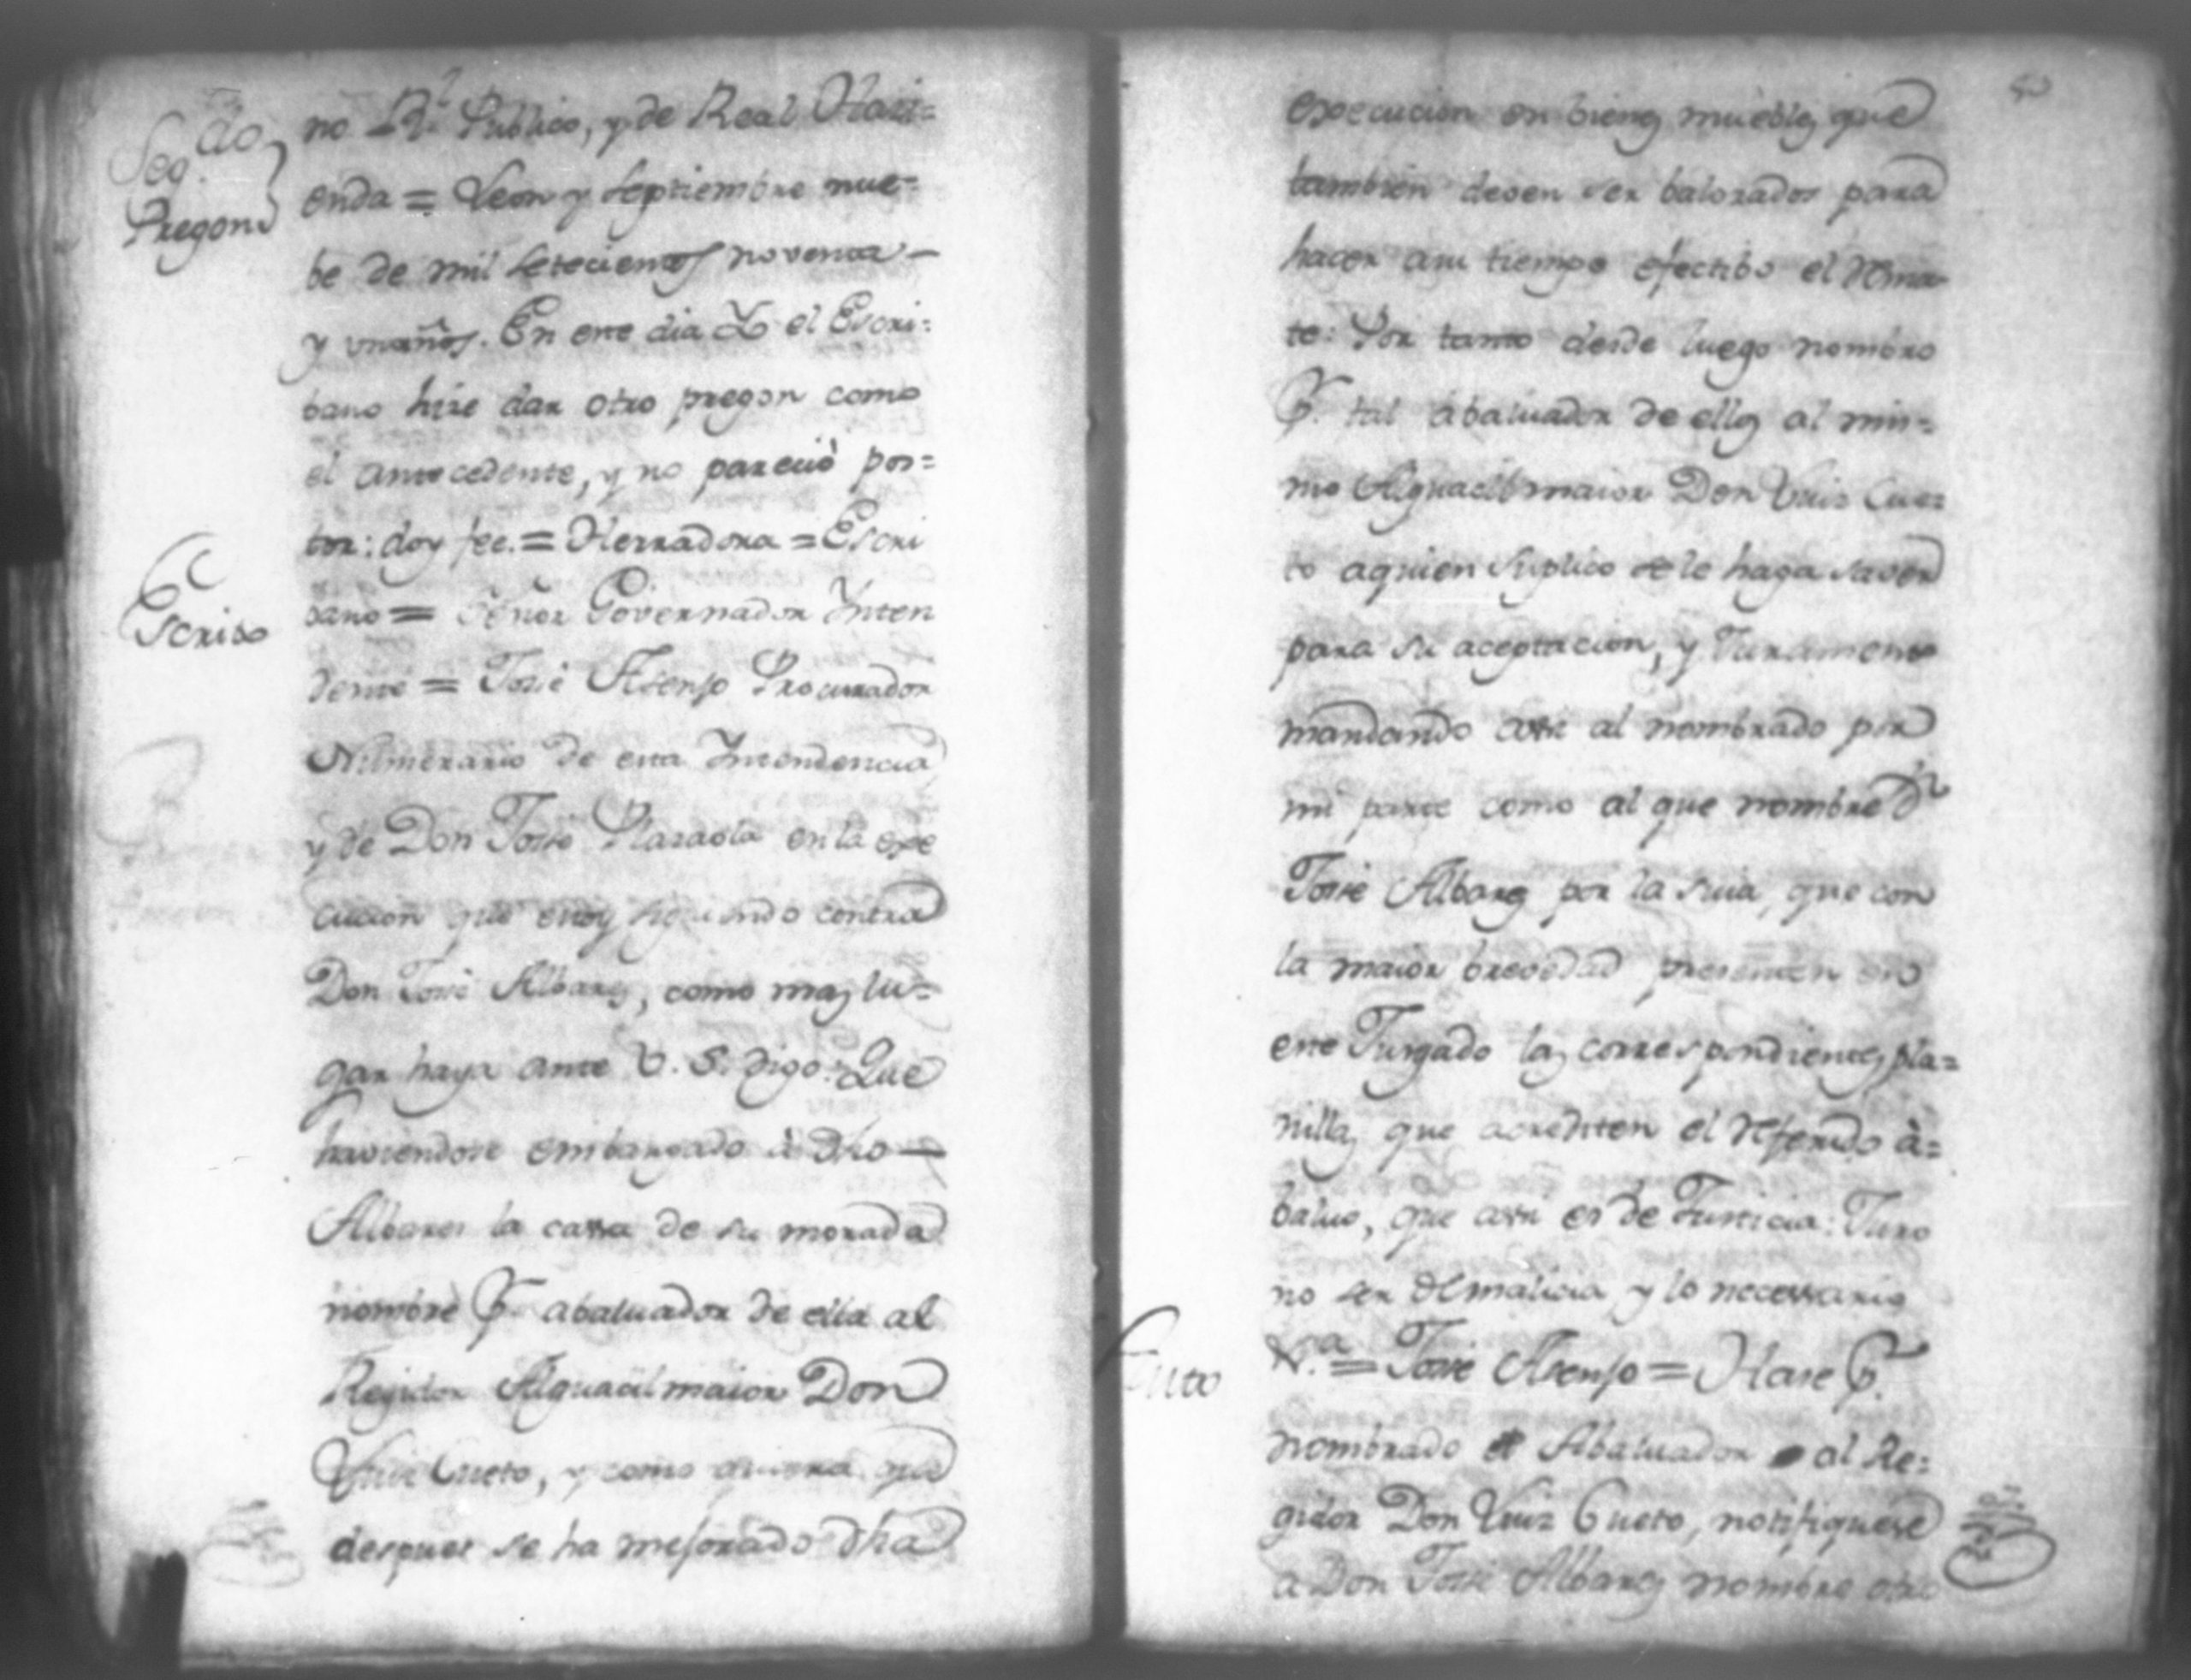 Seg.do
Pregon
no Rl. Publico, y de Real Hazi=
enda = Leon y septiembre nue=
be de mil setecientos noventa
y un años. En este dia Yo el Escri=
bano hize dar otro pregon como
el antecedente, y no pareció pos=
tor: doy fee. = Herradora = Escri
Escrito
bano = Señor Governador Inten
dente = José Asenjo Procurador
Numerario de esta Intendencia
y de Don José en la exe
cucion que estoy siguiendo contra
Don José Albares, como mas lu=
gar haya ante V. S. digo: Que
haviendose embargado à dho
Albares la cassa de su morada
nombré Pr. abaluador de ella al
Regidor Alguacil maior Don
Luis Cueto, y como quiera que
despues se ha mejorado dha
execucion en bienes muebles que
tambien deven ser balorados para
hacer a su tiempo efectibo el Rema
te: Por tanto desde luego nombro
Pr. tal abaluador de ellos al mis=
mo Alguacil maior Don Luis Cue=
to a quien suplico se le haga saver
para su aceptacion, y Juramento
mandando assi al nombrado por
mi parte como al que nombre Dn
José Albares por la suia, que con
la maior brevedad presenten en
este Jusgado las correspondientes pla=
nillas que acrediten el Referido à=
baluo, que assi es de Justicia: Juro
no ser de malicia y lo necessario
Auto
Va. = José Asenjo = Hase Pr.
nombrado Abaluador al Re=
gidor Don Luis Cueto, notifiquese
a Don José Albares nombre otro